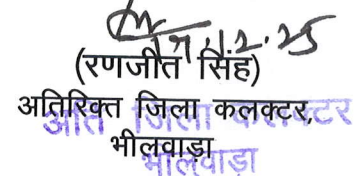 (रणजीत सिंह)
अतिरिक्त जिला कलक्टर,
भीलवाड़ा
अति जिला कलक्टर
भीलवाड़ा